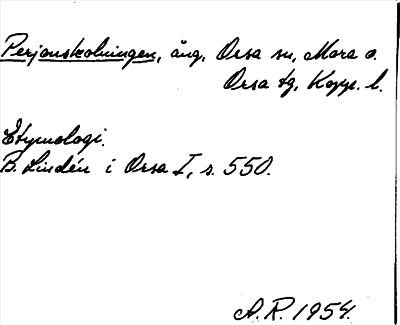 Perjonskolningen, äng, Orsa sn, Mora o.
Orsa tg, Kopp. l.
Etymologi.
B. Lindén i Orsa I, s. 550.
A.R. 1954.